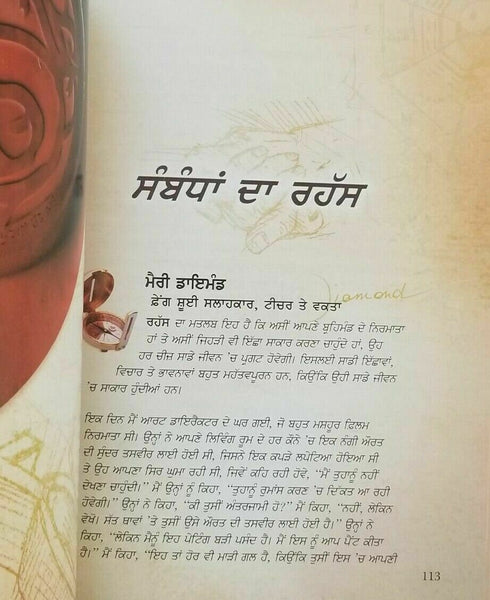 ਸੰਬੰਧਾਂ ਦਾ ਰਹੱਸ
ਮੈਰੀ ਡਾਇਮੰਡ
Diamond
ਫ਼ੇਂਗ ਸ਼ੂਈ ਸਲਾਹਕਾਰ, ਟੀਚਰ ਤੇ ਵਕਤਾ
ਰਹੱਸ ਦਾ ਮਤਲਬ ਇਹ ਹੈ ਕਿ ਅਸੀਂ ਆਪਣੇ ਬ੍ਰਹਿਮੰਡ ਦੇ ਨਿਰਮਾਤਾ
ਹਾਂ ਤੇ ਅਸੀਂ ਜਿਹੜੀ ਵੀ ਇੱਛਾ ਸਾਕਾਰ ਕਰਣਾ ਚਾਹੁੰਦੇ ਹਾਂ, ਉਹ
ਹਰ ਚੀਜ਼ ਸਾਡੇ ਜੀਵਨ 'ਚ ਪ੍ਰਗਟ ਹੋਵੇਗੀ। ਇਸਲਈ ਸਾਡੀ ਇੱਛਾਵਾਂ,
ਵਿਚਾਰ ਤੇ ਭਾਵਨਾਵਾਂ ਬਹੁਤ ਮਹੱਤਵਪੂਰਨ ਹਨ, ਕਿਉਂਕਿ ਉਹੀ ਸਾਡੇ ਜੀਵਨ
'ਚ ਸਾਕਾਰ ਹੁੰਦੀਆਂ ਹਨ।
ਇਕ ਦਿਨ ਮੈਂ ਆਰਟ ਡਾਇਰੈਕਟਰ ਦੇ ਘਰ ਗਈ, ਜੋ ਬਹੁਤ ਮਸ਼ਹੂਰ ਫਿਲਮ
ਨਿਰਮਾਤਾ ਸੀ। ਉਨ੍ਹਾਂ ਨੇ ਆਪਣੇ ਲਿਵਿੰਗ ਰੂਮ ਦੇ ਹਰ ਕੋਨੇ 'ਚ ਇਕ ਨੰਗੀ ਔਰਤ
ਦੀ ਸੁੰਦਰ ਤਸਵੀਰ ਲਾਈ ਹੋਈ ਸੀ, ਜਿਸਨੇ ਇਕ ਕਪੜੇ ਲਪੇਟਿਆ ਹੋਇਆ ਸੀ
ਤੇ ਉਹ ਆਪਣਾ ਸਿਰ ਘੁਮਾ ਰਹੀ ਸੀ, ਜਿਵੇਂ ਕਹਿ ਰਹੀ ਹੋਵੇ, "ਮੈਂ ਤੁਹਾਨੂੰ ਨਹੀਂ
ਦੇਖਣਾ ਚਾਹੁੰਦੀ।" ਮੈਂ ਉਨ੍ਹਾਂ ਨੂੰ ਕਿਹਾ, "ਤੁਹਾਨੂੰ ਰੁਮਾਂਸ ਕਰਣ 'ਚ ਦਿੱਕਤ ਆ ਰਹੀ
ਹੋਵੇਗੀ।" ਉਨ੍ਹਾਂ ਨੇ ਕਿਹਾ, "ਕੀ ਤੁਸੀਂ ਅੰਤਰਜਾਮੀ ਹੋ?" ਮੈਂ ਕਿਹਾ, "ਨਹੀਂ, ਲੇਕਿਨ
ਵੇਖੋ। ਸੱਤ ਥਾਵਾਂ 'ਤੇ ਤੁਸੀਂ ਉਸੇ ਔਰਤ ਦੀ ਤਸਵੀਰ ਲਾਈ ਹੋਈ ਹੈ।" ਉਨ੍ਹਾਂ ਨੇ
ਕਿਹਾ, "ਲੇਕਿਨ ਮੈਨੂੰ ਇਹ ਪੇਂਟਿੰਗ ਬੜੀ ਪਸੰਦ ਹੈ। ਮੈਂ ਇਸ ਨੂੰ ਆਪ ਪੇਂਟ ਕੀਤਾ
ਹੈ।" ਮੈਂ ਕਿਹਾ, "ਇਹ ਤਾਂ ਹੋਰ ਵੀ ਮਾੜੀ ਗਲ ਹੈ, ਕਿਉਂਕਿ ਤੁਸੀਂ ਇਸ 'ਚ ਆਪਣੀ
113